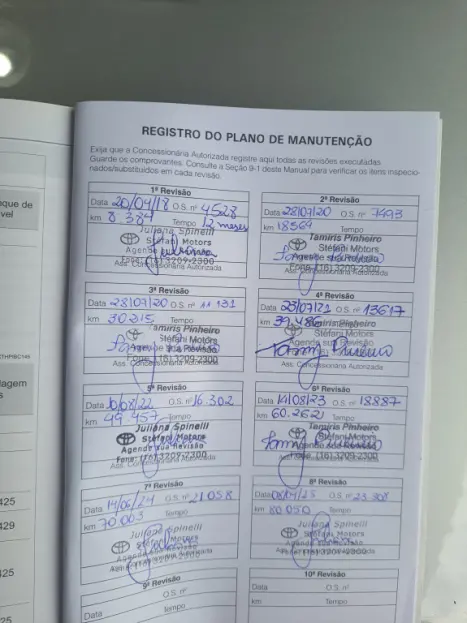 REGISTRO DO PLANO DE MANUTENÇÃO
Exija que a Concessionária Autorizada registre aqui todas as revisões executadas.
Guarde os comprovantes. Consulte a Seção 9-1 deste Manual para verificar os itens inspecio-
nados/substituídos em cada revisão.
1ª Revisão
Data 20/04/18 O.S. nº 4528
km 8.384 Tempo 12 meses
Juliana Spinelli
Stéfani Motors
Agende
Fone: (16) 3209-2300
Ass. Concessionária Autorizada
2ª Revisão
Data 28/07/20 O.S. nº 7493
km 18564 Tempo
Tamiris Pinheiro
Stéfani Motors
Agende sua Revisão
Fone: (16) 3209-2300
3ª Revisão
Data 28/07/20 O.S. nº 11 131
km 30.215 Tempo
Tamiris Pinheiro
Stéfani Motors
Agende sua Revisão
Fone: (16) 3209-2300
Ass. Concessionária Autorizada
4ª Revisão
Data 23/07/21 O.S. nº 13617
km 39.486
Tamiris Pinheiro
Stéfani Motors
Agende sua Revisão
Fone: (16) 3209-2300
Ass. Concessionária Autorizada
5ª Revisão
Data 10/08/22 O.S. nº 16.302
km 49.457 Tempo
Juliana Spinelli
Stéfani Motors
Agende sua Revisão
Fone: (16) 3209-2300
Ass. Concessionária Autorizada
6ª Revisão
Data 14/08/23 O.S. nº 18887
km 60.262 Tempo
Tamiris Pinheiro
Stéfani Motors
Agende sua Revisão
Fone: (16) 3209-2300
Ass. Concessionária Autorizada
7ª Revisão
Data 14/06/24 O.S. nº 21.058
km 70 003 Tempo
Juliana Spinelli
Stéfani Motors
Agende sua Revisão
Fone: (16) 3209-2300
8ª Revisão
Data 08/04/25 O.S. nº 23.308
km 80.050 Tempo
Juliana Spinelli
Stéfani Motors
Agende sua Revisão
Fone: (16) 3209-2300
9ª Revisão
Data O.S. nº
km Tempo
10ª Revisão
Data O.S. nº
km Tempo
nque de
vel
THPIBC145
lagem
s
425
429
425
25